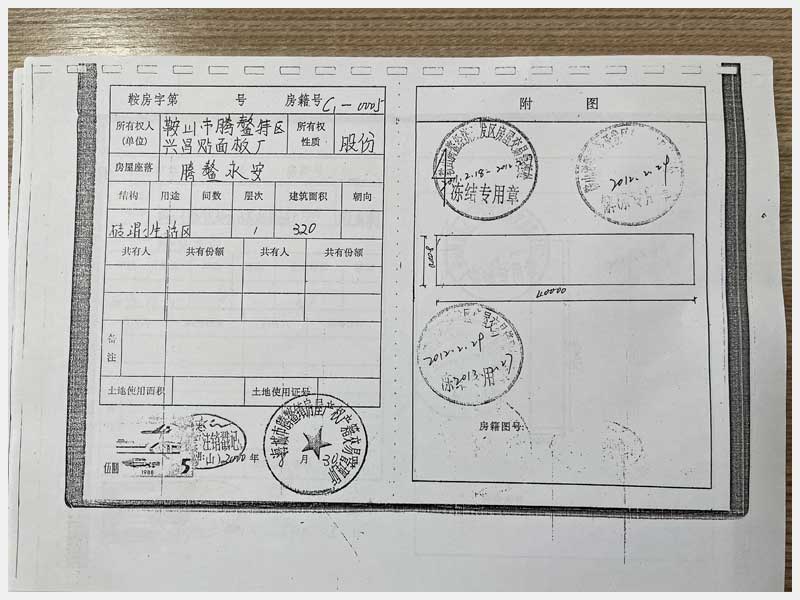 鞍房字第 号 房籍号 C1-0005
所有权人(单位) 鞍山市腾鳌特区兴昌贴面板厂 所有权性质 股份
房屋座落 腾鳌永安
结构 用途 间数 层次 建筑面积 朝向
砖混 生活区 1 320
共有人 共有份额 共有人 共有份额
备注
土地使用面积 土地使用证号
注销戳记
伍圆 1988 5
2000 年 月 30
海城市腾鳌镇房屋产权产籍交易管理所
附 图
冻结专用章
2012.2.28
8000
40000
2012.2.28
2013
房籍图号: